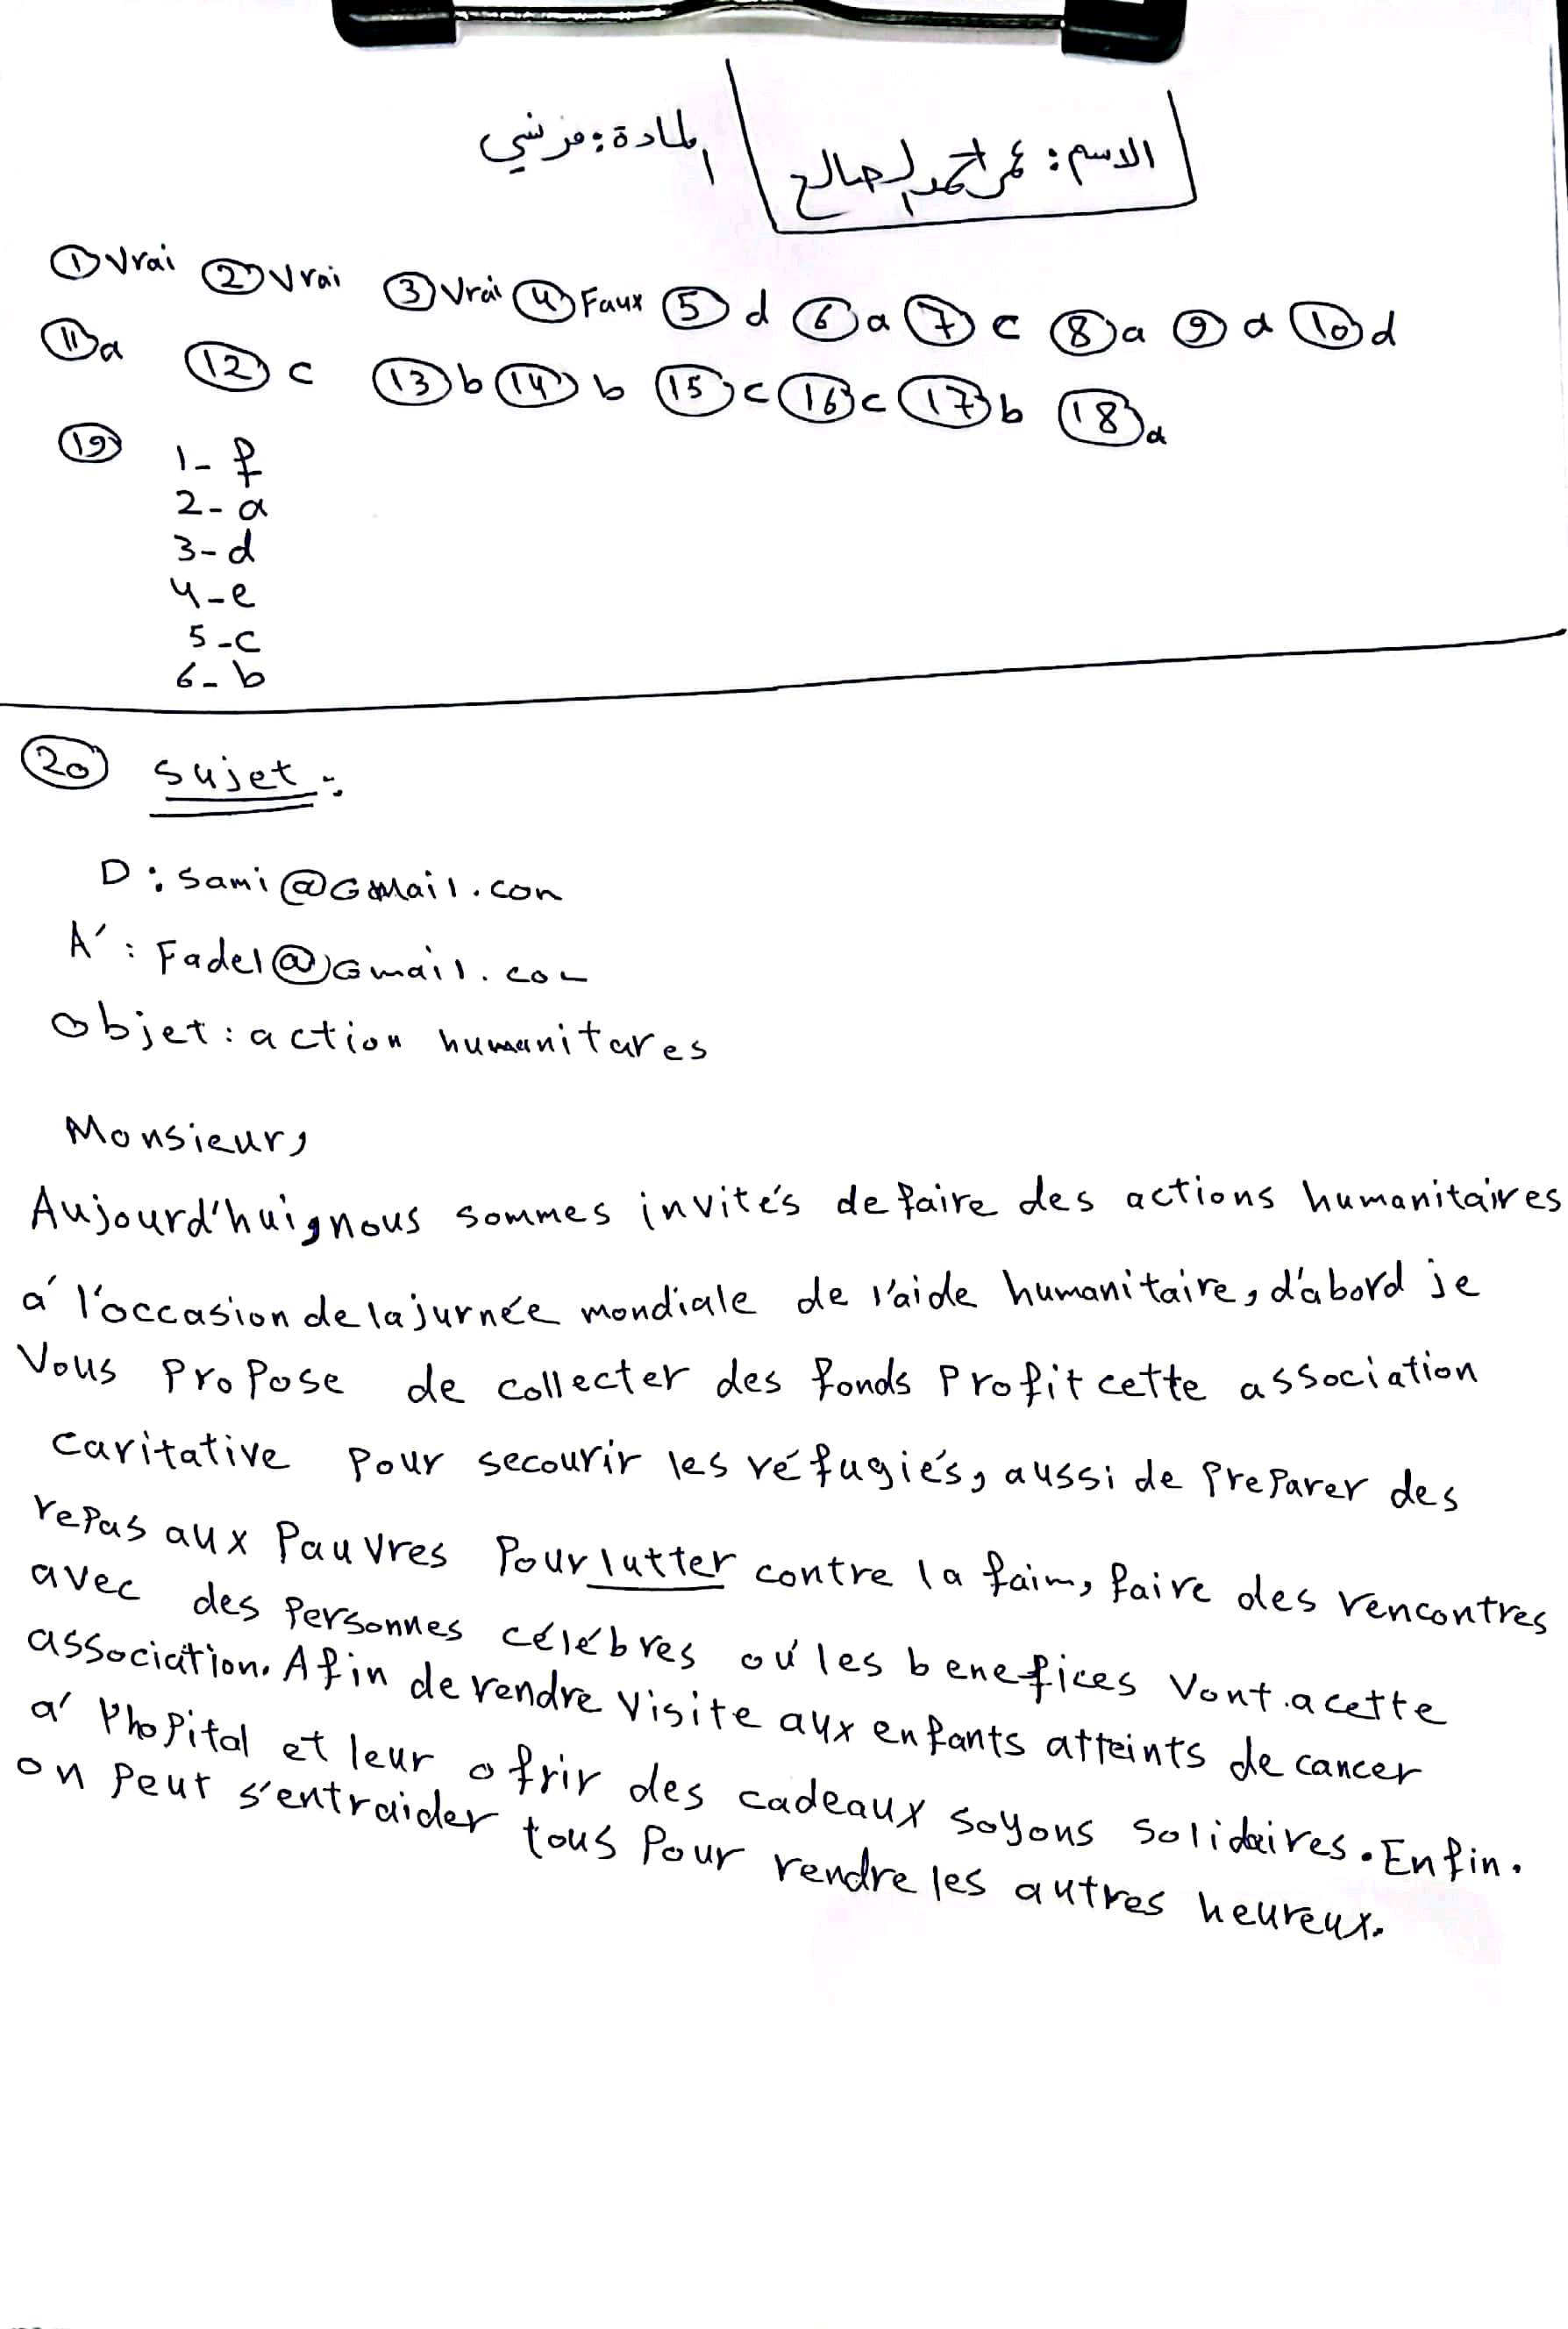 الاسم: عمر احمد لصالح
المادة: فرنسي
① Vrai ② Vrai ③ Vrai ④ Faux ⑤ d ⑥ a ⑦ c ⑧ a ⑨ a ⑩ d
⑪ a ⑫ c ⑬ b ⑭ b ⑮ c ⑯ c ⑰ b ⑱ a
⑲ 1- f
2- a
3- d
4- e
5 - c
6- b
⑳ sujet :
D : sami@Gmail.con
A' : Fadel@Gmail.com
objet : action humanitares
Monsieur,
Aujourd'hui, nous sommes invités de faire des actions humanitaires
á l'occasion de la jurnée mondiale de l'aide humanitaire, d'abord je
Vous propose de collecter des fonds Profit cette association
caritative pour secourir les réfugiés, aussi de preparer des
repas aux Pauvres Pour lutter contre la faim, faire des rencontres
avec des Personnes célébres oú les benefices Vont a cette
association. Afin de rendre Visite aux enfants atteints de cancer
a' l'hopital et leur ofrir des cadeaux soyons solidaires. Enfin.
on Peut s'entraider tous Pour rendre les autres heureux.